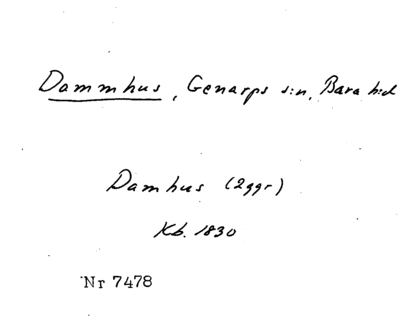 Dammhus, Genarps s:n, Bara h:d
Damhus (2ggr)
Kb. 1830
Nr 7478